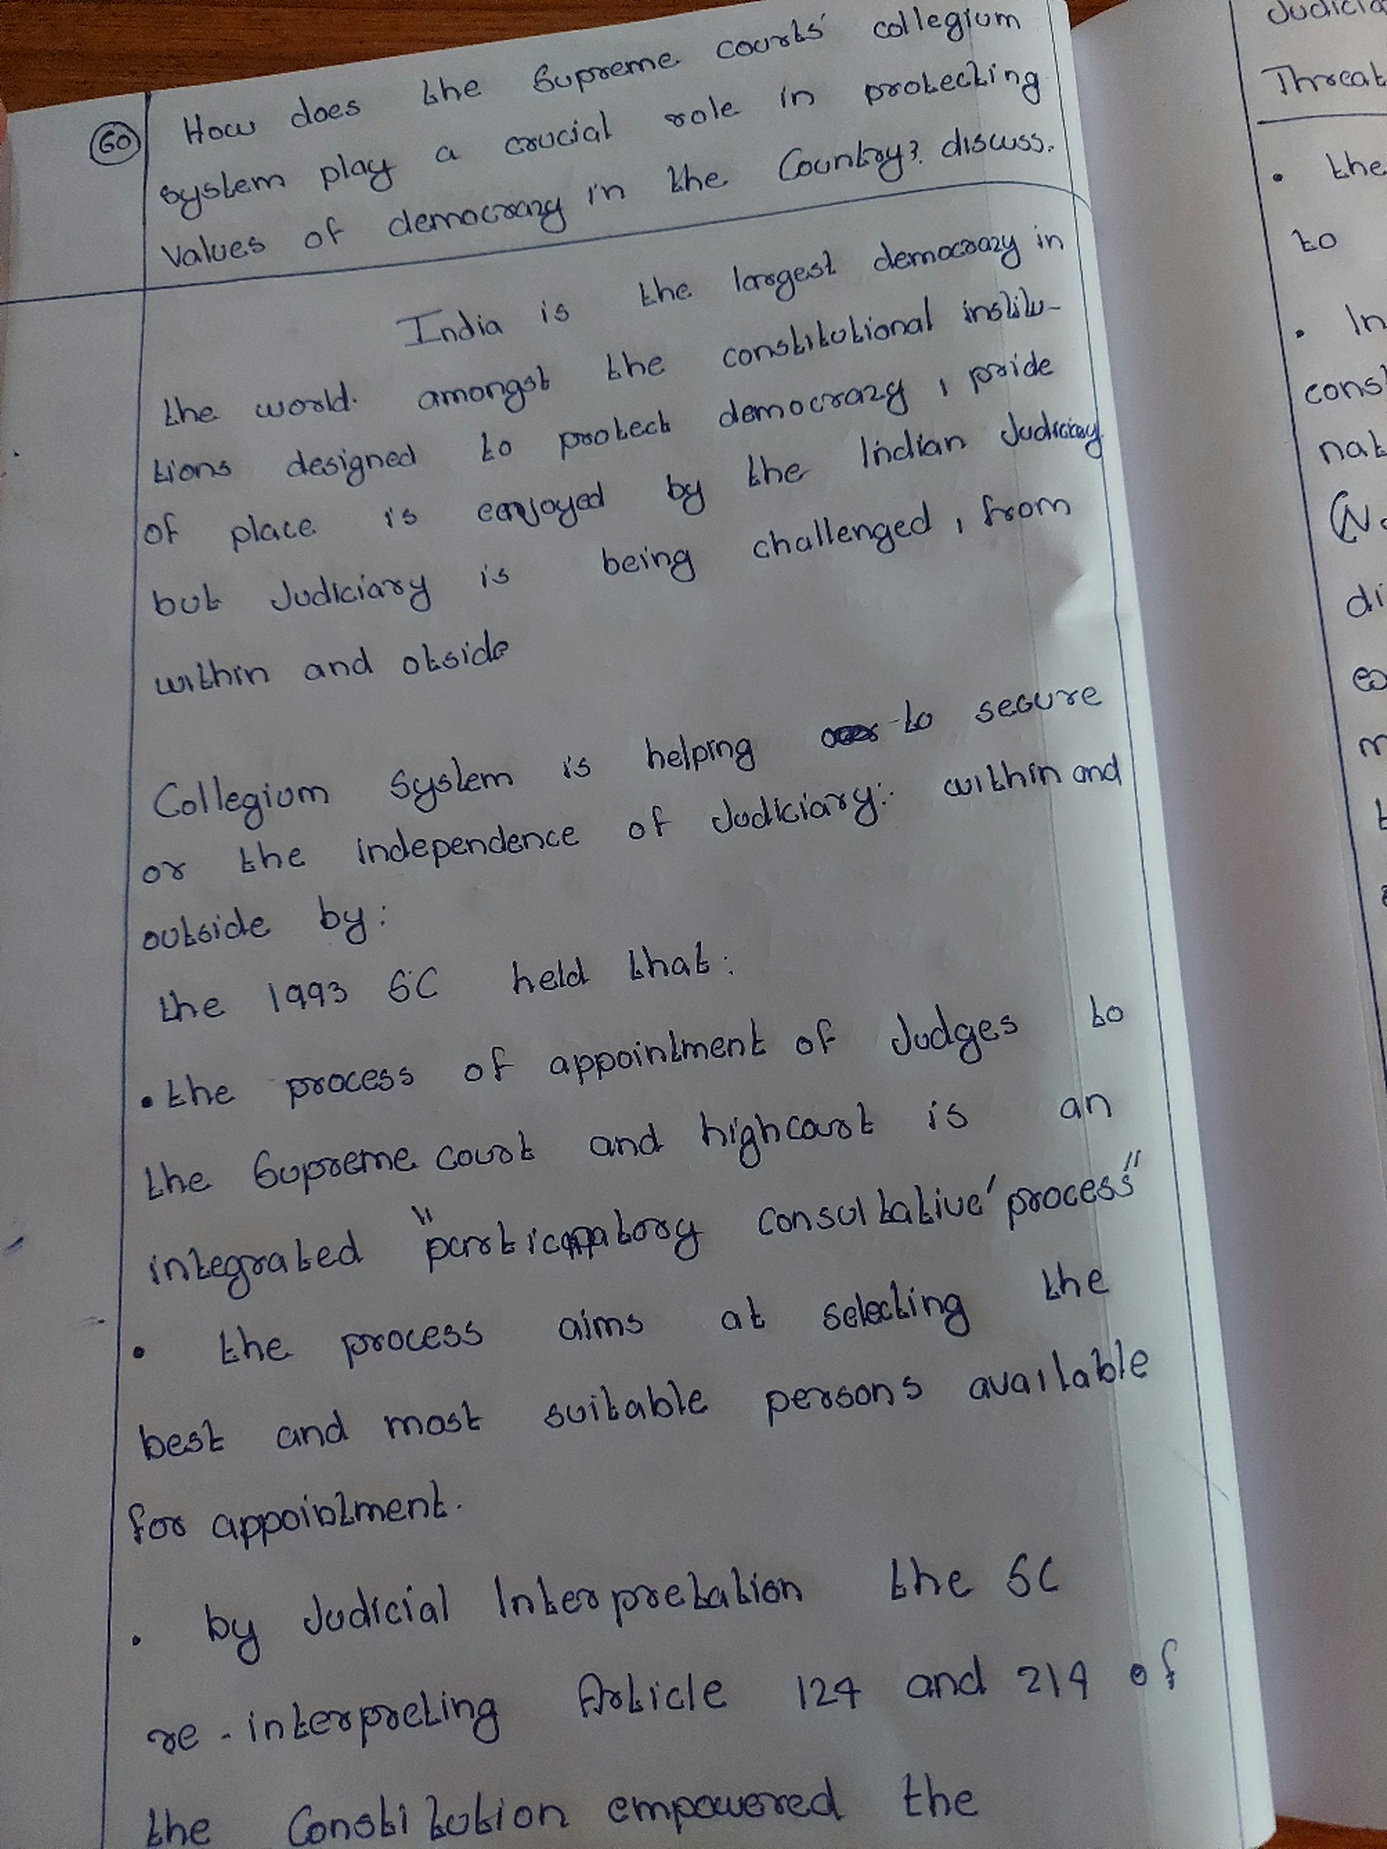 60 How does the Supreme courts' collegium
system play a crucial role in protecting
values of democrazy in the Country? discuss.
India is the largest democrazy in
the world. amongst the constitutional institu-
tions designed to protect democrazy, pride
of place is enjoyed by the Indian Judiciay.
but Judiciary is being challenged, from
within and otside
Collegium System is helping to secure
or the independence of Judiciary:- within and
outside by:
the 1993 SC held that:
• the process of appointment of Judges to
the Supreme court and highcourt is an
integrated "participatory consultative' process"
• the process aims at selecting the
best and most suitable persons available
for appointment.
• by Judicial Interpretation the SC
re-interpreting Article 124 and 219 of
the Constitution empowered the
Judicia
Threat
• the
to
• In
cons
nat
di